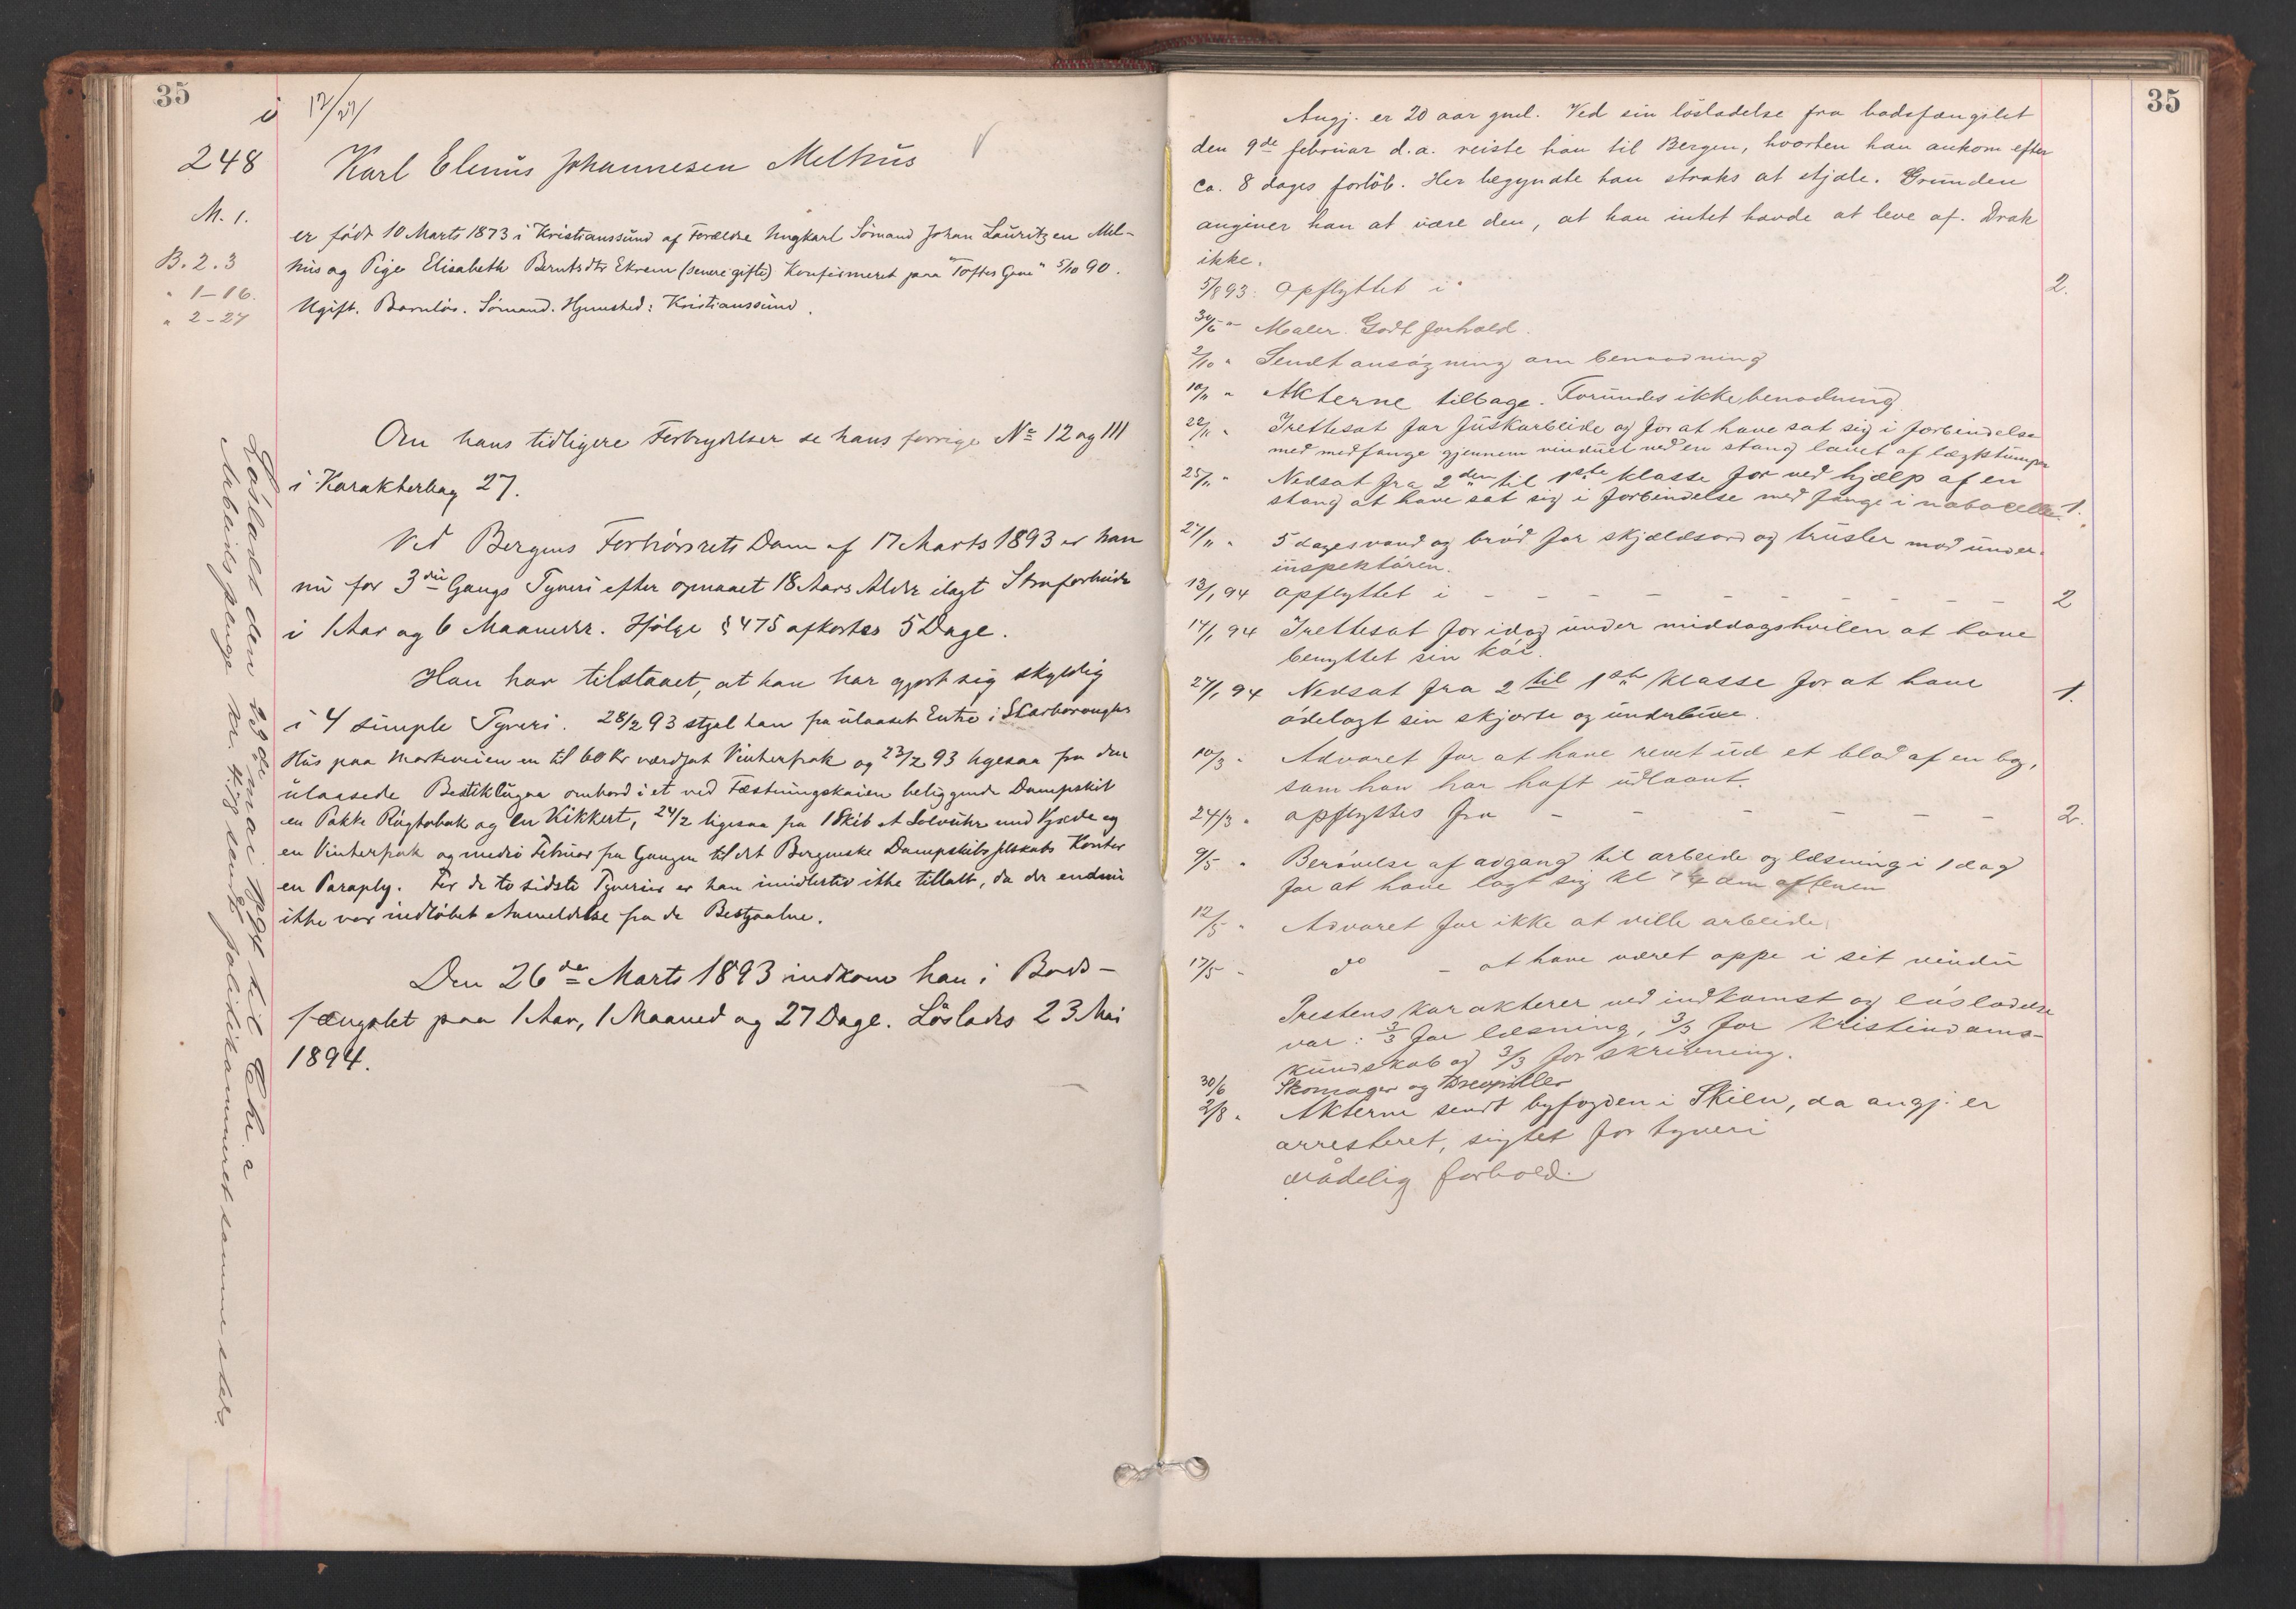 35
i 17/27
248
Karl Elenus Johannesen Melhus
M. 1.
B. 2. 3
" 1-16.
" 2-27
er født 10 Marts 1873 i Kristianssund af Forældre Ungkarl Sømand Johan Lauritzen Mel-
hus og Pige Elisabeth Berntsdtr Ekrem (senere gifte) Konfirmeret paa "Toftes Gave" 5/10 90.
Ugift. Barnløs. Sømand. Hjemsted: Kristianssund.
Om hans tidligere Forbrydelser se hans forrige No 12 og 111
i Karakterbog 27.
Ved Bergens Forhørsrets Dom af 17 Marts 1893 er han
nu for 3die Gangs Tyveri efter opnaaet 18 Aars Alder ilagt Strafarbeide
i 1 Aar og 6 Maaneder. Ifølge § 475 afkortes 5 Dage.
Han har tilstaaet, at han har gjort sig skyldig
i 4 simple Tyveri. 28/2 93 stjal han fra ulaaset Entre i Scarboroughs
Hus paa Markeveien en til 60 Kr værdsat Vinterfrak og 23/2 93 ligesaa fra den
ulaasede Bestiklugar ombord i et ved Fæstningskaien beliggende Dampskib
en Pakke Røgtobak og en Kikkert, 24/2 ligesaa fra 1 Skib et Sølvuhr med Kjæde og
en Vinterfrak og medio Februar fra Gangen til det Bergenske Dampskibsselskabs Kontor
en Paraply. For de to sidste Tyverier er han imidlertid ikke tiltalt, da der endnu
ikke var indløbet Anmeldelse fra de Bestjaalne.
Den 26de Marts 1893 indkom han i Bods-
fængslet paa 1 Aar, 1 Maaned og 27 Dage. Løslades 23 Mai
1894.
Løsladt den 23de mai 1894 til Chr.a
Arbeidspenge kr. sendt politikammeret samme steds.
35
Angj. er 20 aar gml. Ved sin løsladelse fra bodsfængslet
den 9de februar d.a. reiste han til Bergen, hvorhen han ankom efter
ca. 8 dages forløb. Her begyndte han straks at stjæle. Grunden
angiver han at være den, at han intet havde at leve af. Drak
ikke.
5/8 93: Opflyttet i 2.
30/6 " Maler. Godt forhold.
2/10 " Sendt ansøgning om benaadning
10/11 " Akterne tilbage. Forundes ikke benadning
22/11 " Irettesat for fuskarbeide og for at have sat sig i forbindelse
med medfange gjennem vinduet ved en stang lavet af lægtstumper
25/11 " Nedsat fra 2den til 1ste klasse for ved hjælp af en
stang at have sat sig i forbindelse med fange i nabocelle 1.
27/11 " 5 dages vand og brød for skjældsord og trusler mod under-
inspektøren.
13/1 94 opflyttet i - - - - - - - - - 2
14/1 94 Irettesat for idag under middagshvilen at have
benyttet sin køi.
27/1 94 Nedsat fra 2 til 1ste klasse for at have 1.
ødelagt sin skjorte og underbuxe.
10/3 " Advaret for at have revet ud et blad af en bog,
som han har haft udlaant.
24/3 " opflyttes fra - - - - - - 2.
9/5 " Berøvelse af adgang til arbeide og læsning i 1 dag
for at have lagt sig kl om aftenen
12/5 " Advaret for ikke at ville arbeide.
17/5 " do - at have været oppe i sit vindu
Prestens karakterer ved indkomst og løsladelse
var: 3/3 for læsning, 3/3 for kristendoms-
kundskab og 3/3 for skrivning.
30/6 Skomager og Drevpiller
2/8 " Akterne sendt byfogden i Skien, da angj. er
arresteret, sigtet for tyveri
Mådelig forhold.